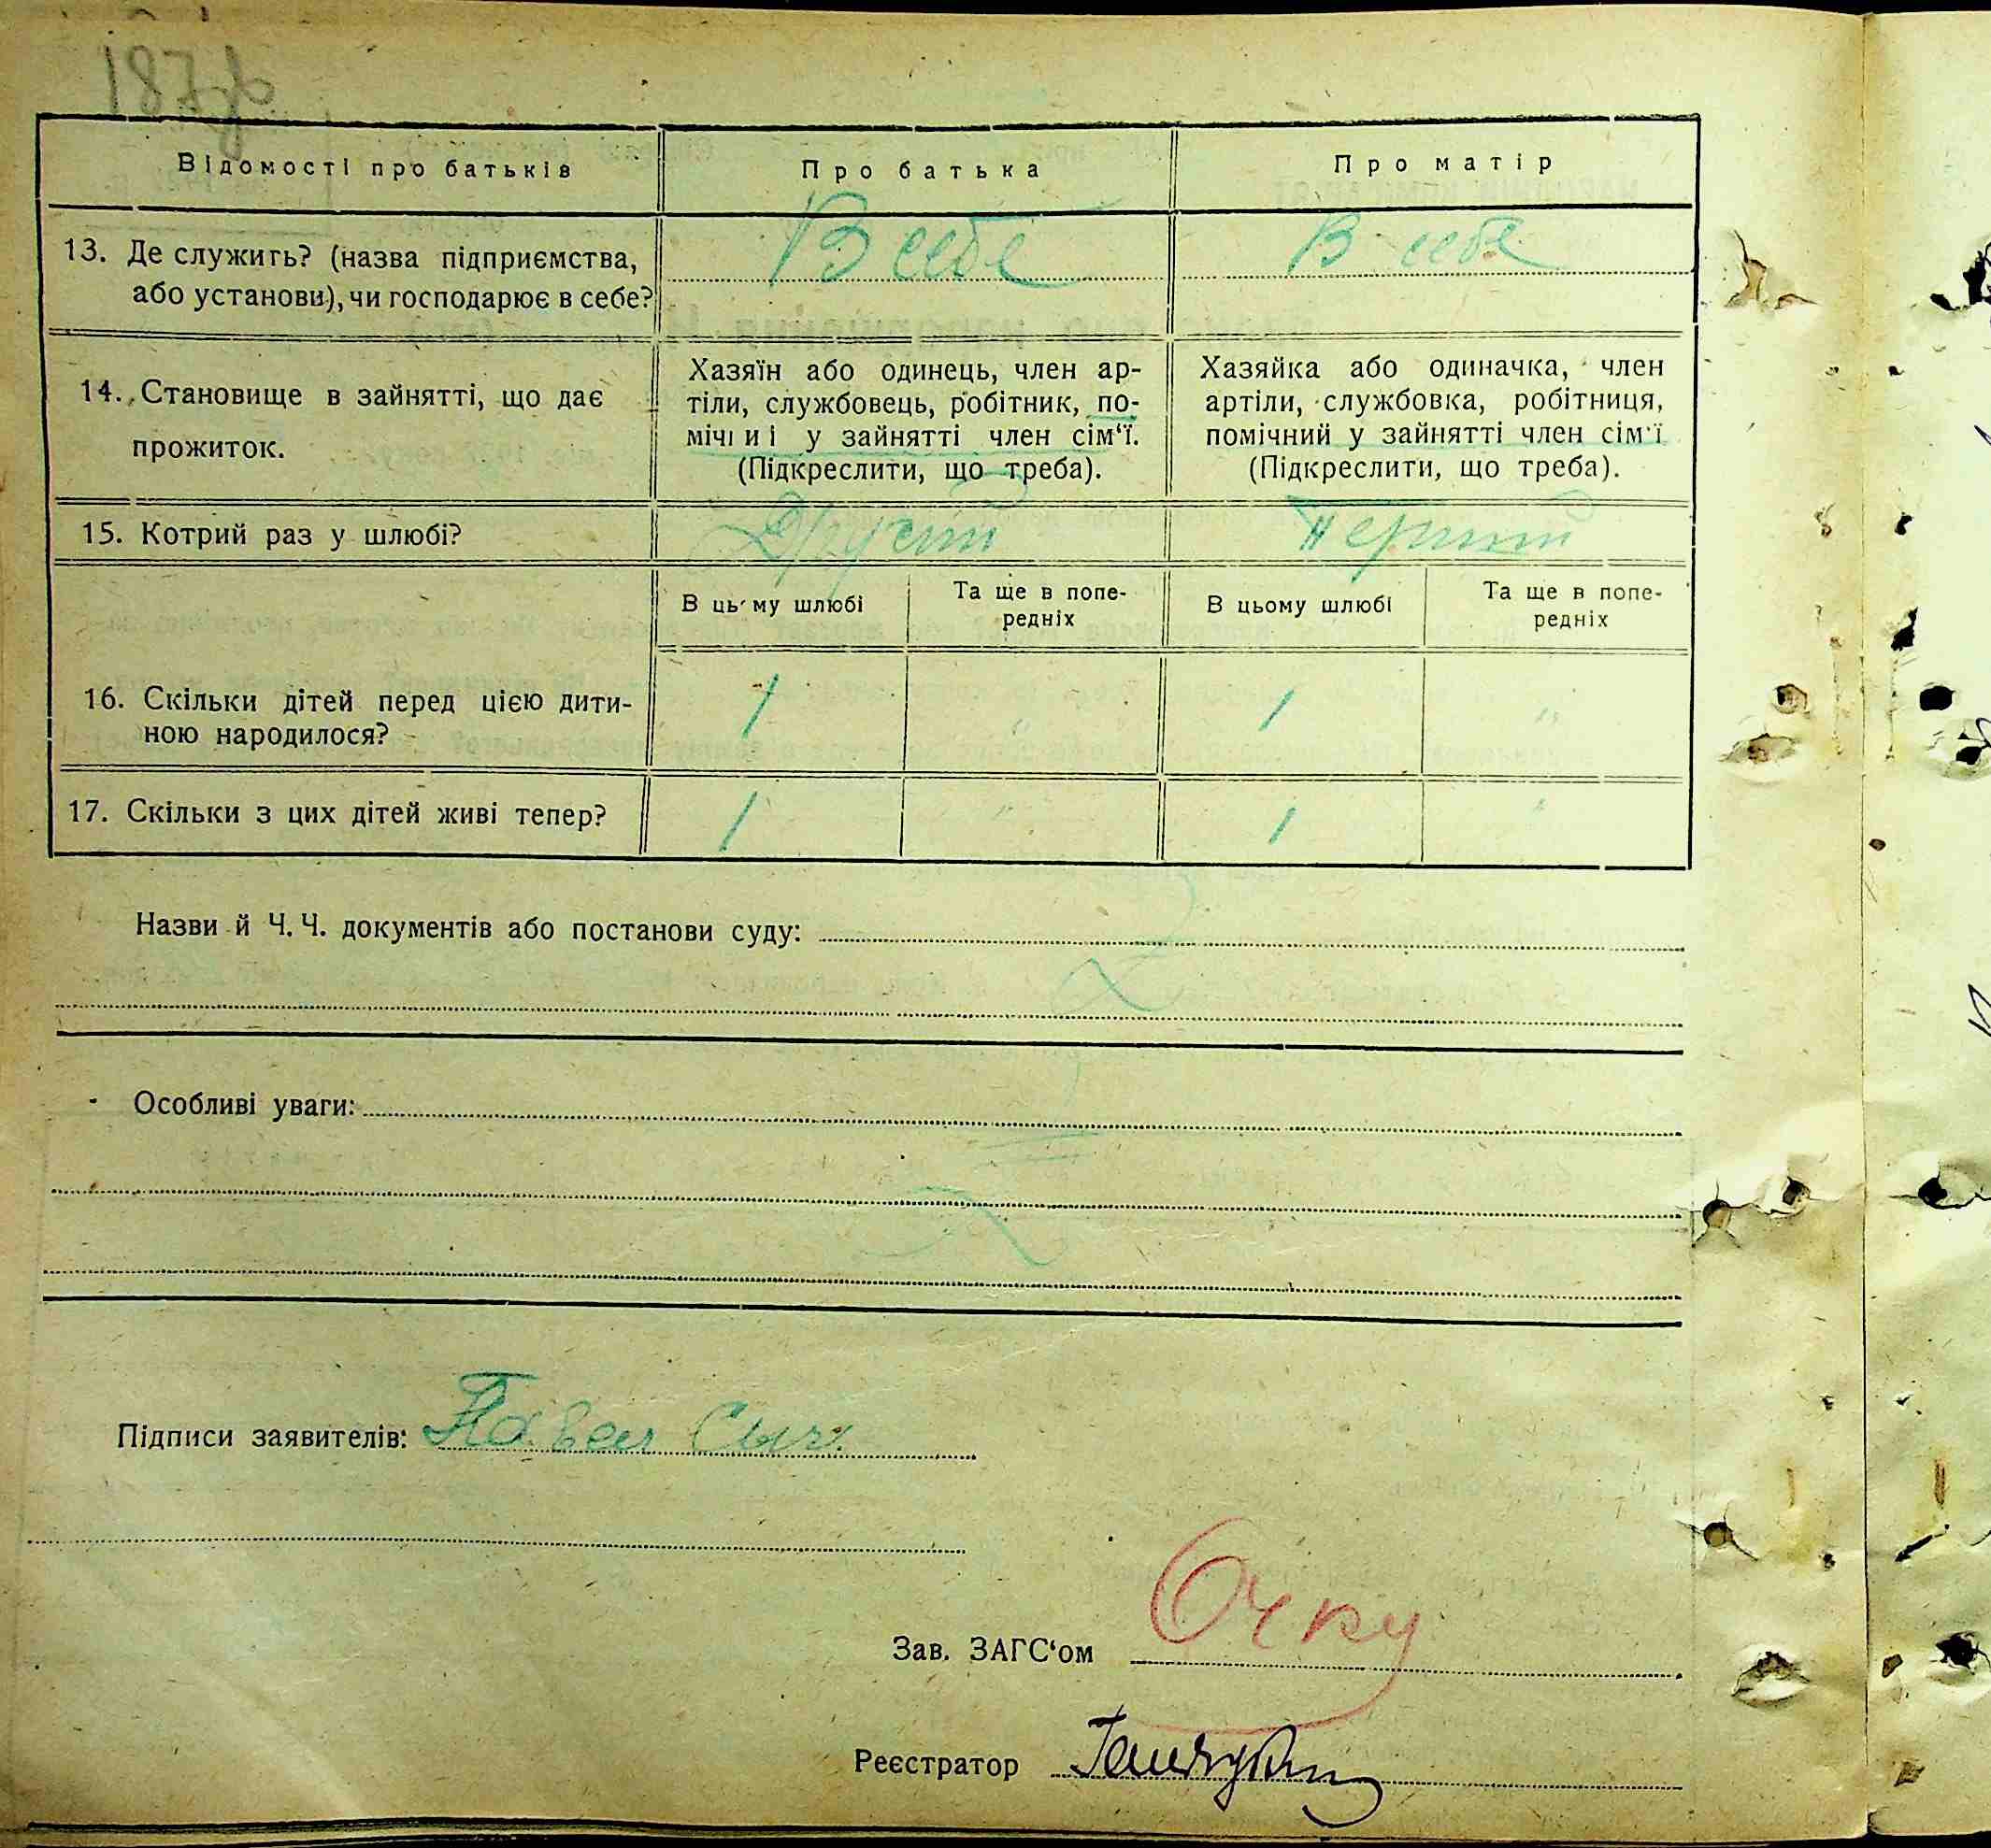 Відомості про батьків
Про батька
Про матір
13. Де служить? (назва підприємства, або установи), чи господарює в себе?
В себе
В себе
14. Становище в зайнятті, що дає прожиток.
Хазяїн або одинець, член ар-
тіли, службовець, робітник, по-
мічниі у зайнятті член сім‘ї.
(Підкреслити, що треба).
Хазяйка або одиначка, член
артіли, службовка, робітниця,
помічний у зайнятті член сім‘ї
(Підкреслити, що треба).
15. Котрий раз у шлюбі?
Другий
Перший
В цьому шлюбі
Та ще в попе-
редніх
В цьому шлюбі
Та ще в попе-
редніх
16. Скільки дітей перед цією дити-
ною народилося?
1
"
1
"
17. Скільки з цих дітей живі тепер?
1
"
1
"
Назви й Ч. Ч. документів або постанови суду:
Особливі уваги:
Підписи заявителів: Павел Сыч
Зав. ЗАГС‘ом
Реєстратор